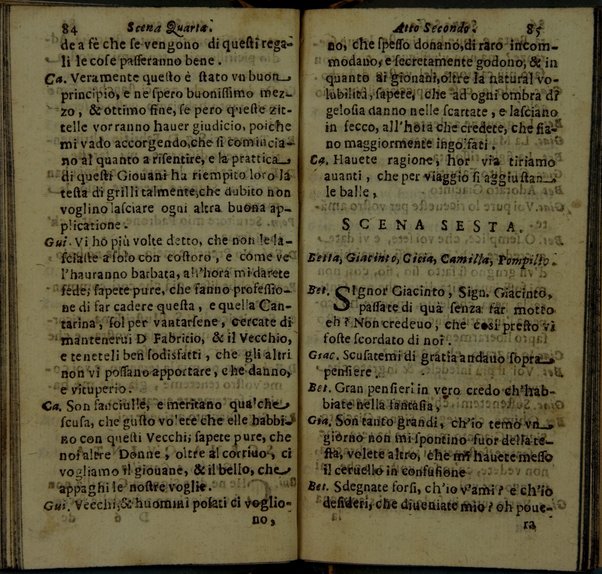 84 Scena Quarta.
de a fè che se vengono di questi rega-
li le cose passeranno bene.
Ca. Veramente questo è stato vn buon
principio, e ne spero buonissimo mez-
zo, & ottimo fine, se pero queste zit-
telle vorranno hauer giudicio, poiche
mi vado accorgendo, che si comincia-
no al quanto a risentire, e la prattica
di questi Giouani ha ripieno loro la
testa di grilli talmente, che dubito non
voglino lasciare ogni altra buona ap-
plicatione.
Gui. Vi hò più volte detto, che non le la-
sciaste a solo con costoro, e come ve
l'hauranno barbata, all'hora mi darete
fede; sapete pure, che fanno professio-
ne di far cadere questa, e quella Can-
tarina, sol per vantarsene, cercate di
manteneruì D Fabritio, & il Vecchio,
e teneteli ben sodisfatti, che gli altri
non vi possano apportare, che danno,
e vituperio.
Ca. Son fanciulle, e meritano qualche
scusa, che gusto volere che elle habbi-
no con questi Vecchi; sapete pure, che
noi altre Donne, oltre al corriuo, ci
vogliamo il giouane, & il bello, che
appaghi le nostre voglie.
Gui. Vecchi, & huomini posati ci voglio-
no,
Atto Secondo. 85
no, che spesso donano, di raro incom-
modano, e secretamente godono, & in
quanto ai giouani, oltre la natural vo-
lubilità, sapete, che ad ogni ombra di
gelosia danno nelle scartate, e lasciano
in secco, all'hora che credete, che sia-
no maggiormente ingolfati.
Ca. Hauete ragione, hor via tiriamo
auanti, che per viaggio si aggiustan
le balle,
SCENA SESTA.
Betta, Giacinto, Cicia, Camilla, Pompilio.
Bet. SIgnor Giacinto, Sign. Giacinto,
passate di quà senza far motto
eh? Non credeuo, che così presto vi
foste scordato di noi.
Giac. Scusatemi di gratia andauo sopra
pensiere.
Bet. Gran pensieri in vero credo ch'hab-
biate nella fantasia,
Gia. Son tanto grandi, ch'io temo vn
giorno non mi spontino fuor della te-
sta, volete altro, che mi hauete messo
il ceruello in confusione
Bet. Sdegnate forsi, ch'io v'ami? e ch'io
desideri, che diueniate mio? oh poue-
ra